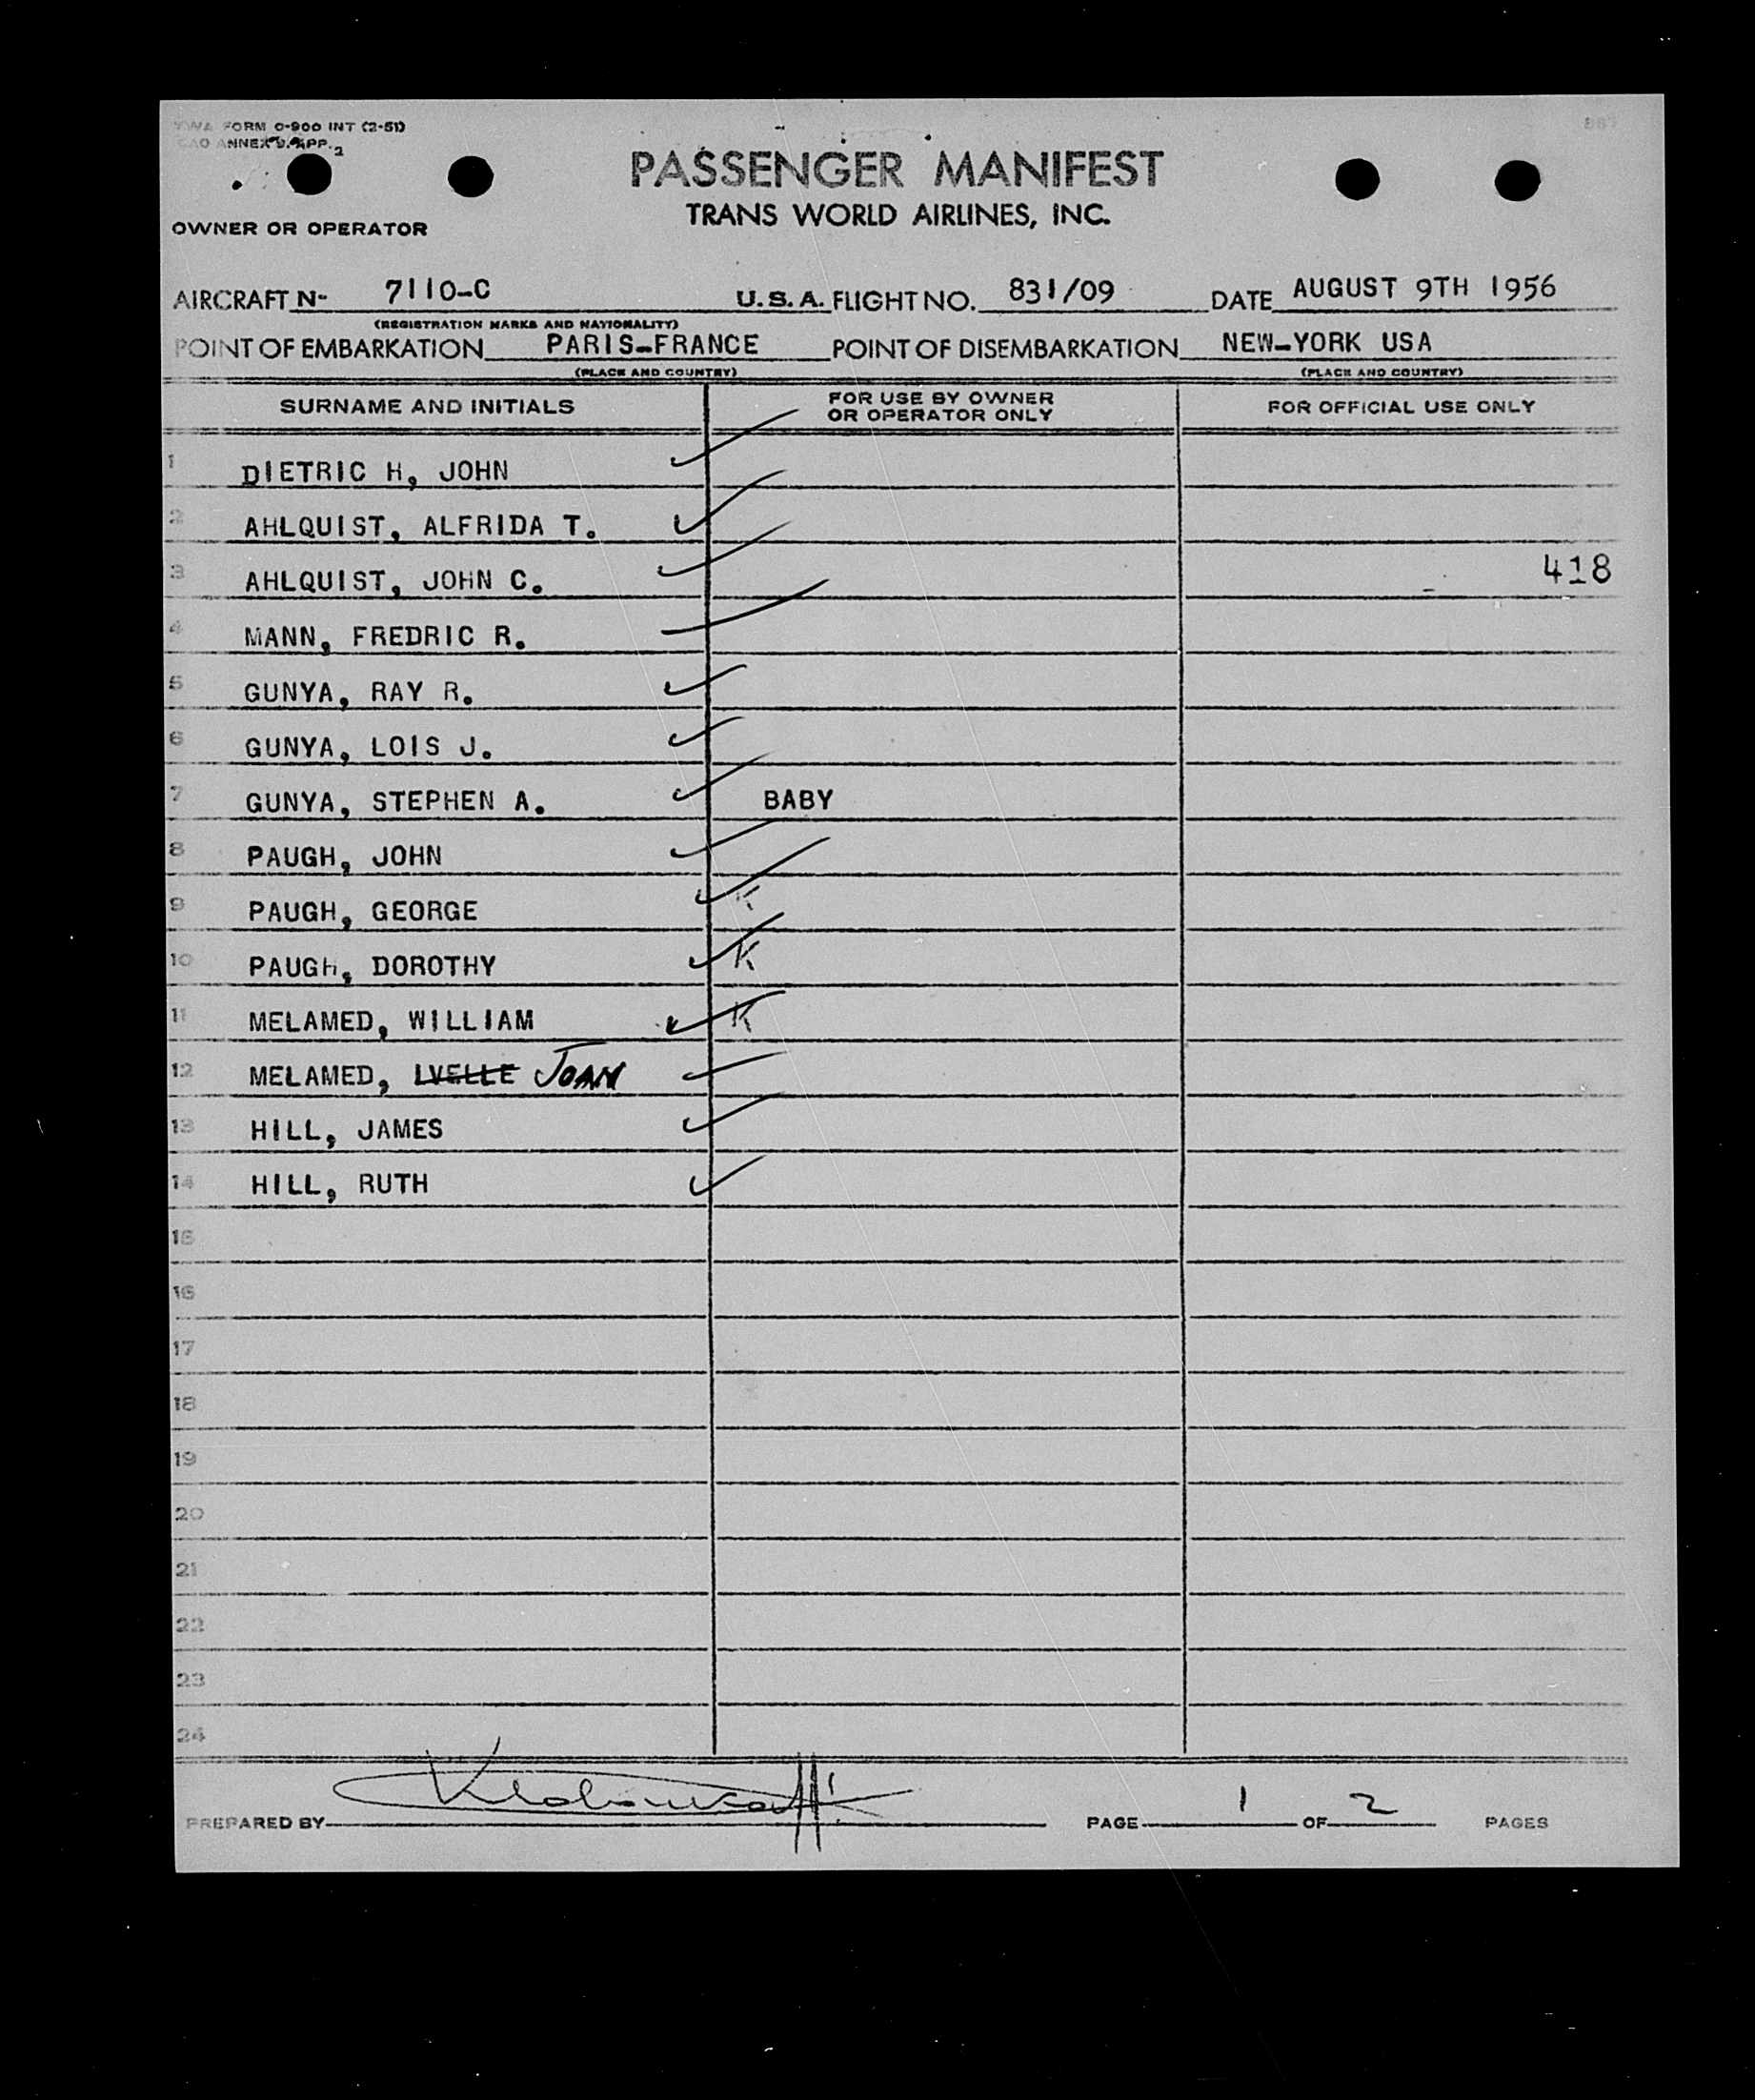 TWA FORM O-900 INT (2-51)
ICAO ANNEX 9. APP. 2
PASSENGER MANIFEST
TRANS WORLD AIRLINES, INC.
OWNER OR OPERATOR
AIRCRAFT N- 7110-C U.S.A. FLIGHT NO. 831/09 DATE AUGUST 9TH 1956
(REGISTRATION MARKS AND NATIONALITY)
POINT OF EMBARKATION PARIS-FRANCE POINT OF DISEMBARKATION NEW-YORK USA
(PLACE AND COUNTRY) (PLACE AND COUNTRY)
SURNAME AND INITIALS FOR USE BY OWNER OR OPERATOR ONLY FOR OFFICIAL USE ONLY
1 DIETRIC H, JOHN
2 AHLQUIST, ALFRIDA T.
3 AHLQUIST, JOHN C. 418
4 MANN, FREDRIC R.
5 GUNYA, RAY R.
6 GUNYA, LOIS J.
7 GUNYA, STEPHEN A. BABY
8 PAUGH, JOHN
9 PAUGH, GEORGE K
10 PAUGH, DOROTHY K
11 MELAMED, WILLIAM K
12 MELAMED, LVELLE JOAN
13 HILL, JAMES
14 HILL, RUTH
15
16
17
18
19
20
21
22
23
24
PREPARED BY PAGE 1 OF 2 PAGES